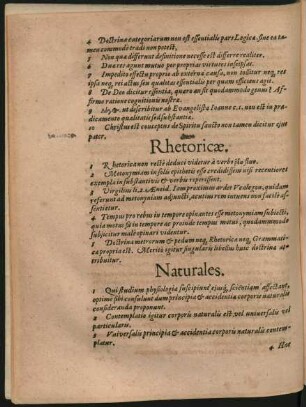 4 Doctrina categoriarum non est essentialis pars Logicæ, sine ea ta-
men commode tradi non potest.
5 Non qua differunt definitione necesse est differre realiter.
6 Dua res agunt mutuo per proprias virtutes insitas.
7 Impedito effectu proprio ab externa causa, non tollitur neq, res
ipsa neq, rei actus seu qualitas essentialis per quam efficiens agit.
8 De Deo dicitur essentia, quare an sit quodammodo genus? Af-
firmo ratione cognitionis nostra.
9 ut describitur ab Evangelista Ioanne c. 1. non est in præ-
dicamento qualitatis sed substantiæ.
10 Christus est conceptus de Spiritu sancto non tamen dicitur ejus
pater.
Rhetoricæ.
1 Rhetorica non recte deduci videtur à verbo fluo.
2 Metonymiam in solis epithetis esse credidissem nisi recentiores
exempla in substantivis & verbis reperissent.
3 Virgilius li. 2. Æneid. Iam proximus ardet Vcalegon, quidam
referunt ad metonymiam adjuncti, acutius rem intuens non facile as-
sentietur.
4 Tempus pro rebus in tempore opinantes esse metonymiam subjecti,
quia motus sit in tempore ac proinde tempus motui, quodammodo
subjicitur male opinari videntur.
5 Doctrina metrorum & pedum neq, Rhetorica neq, Grammati-
ca propria est. Merito igitur singularis libellus huic doctrinæ at-
tribuitur.
Naturales.
1 Qui studium physiologiæ suscipiunt ejusq, scientiam affectant,
optime sibi consulunt dum principia & accidentia corporis naturalis
consideranda proponunt.
2 Contemplatio igitur corporis naturalis est vel universalis vel
particularis.
3 Vniversalis principia & accidentia corporis naturalis contem-
platur.
4 Hæc